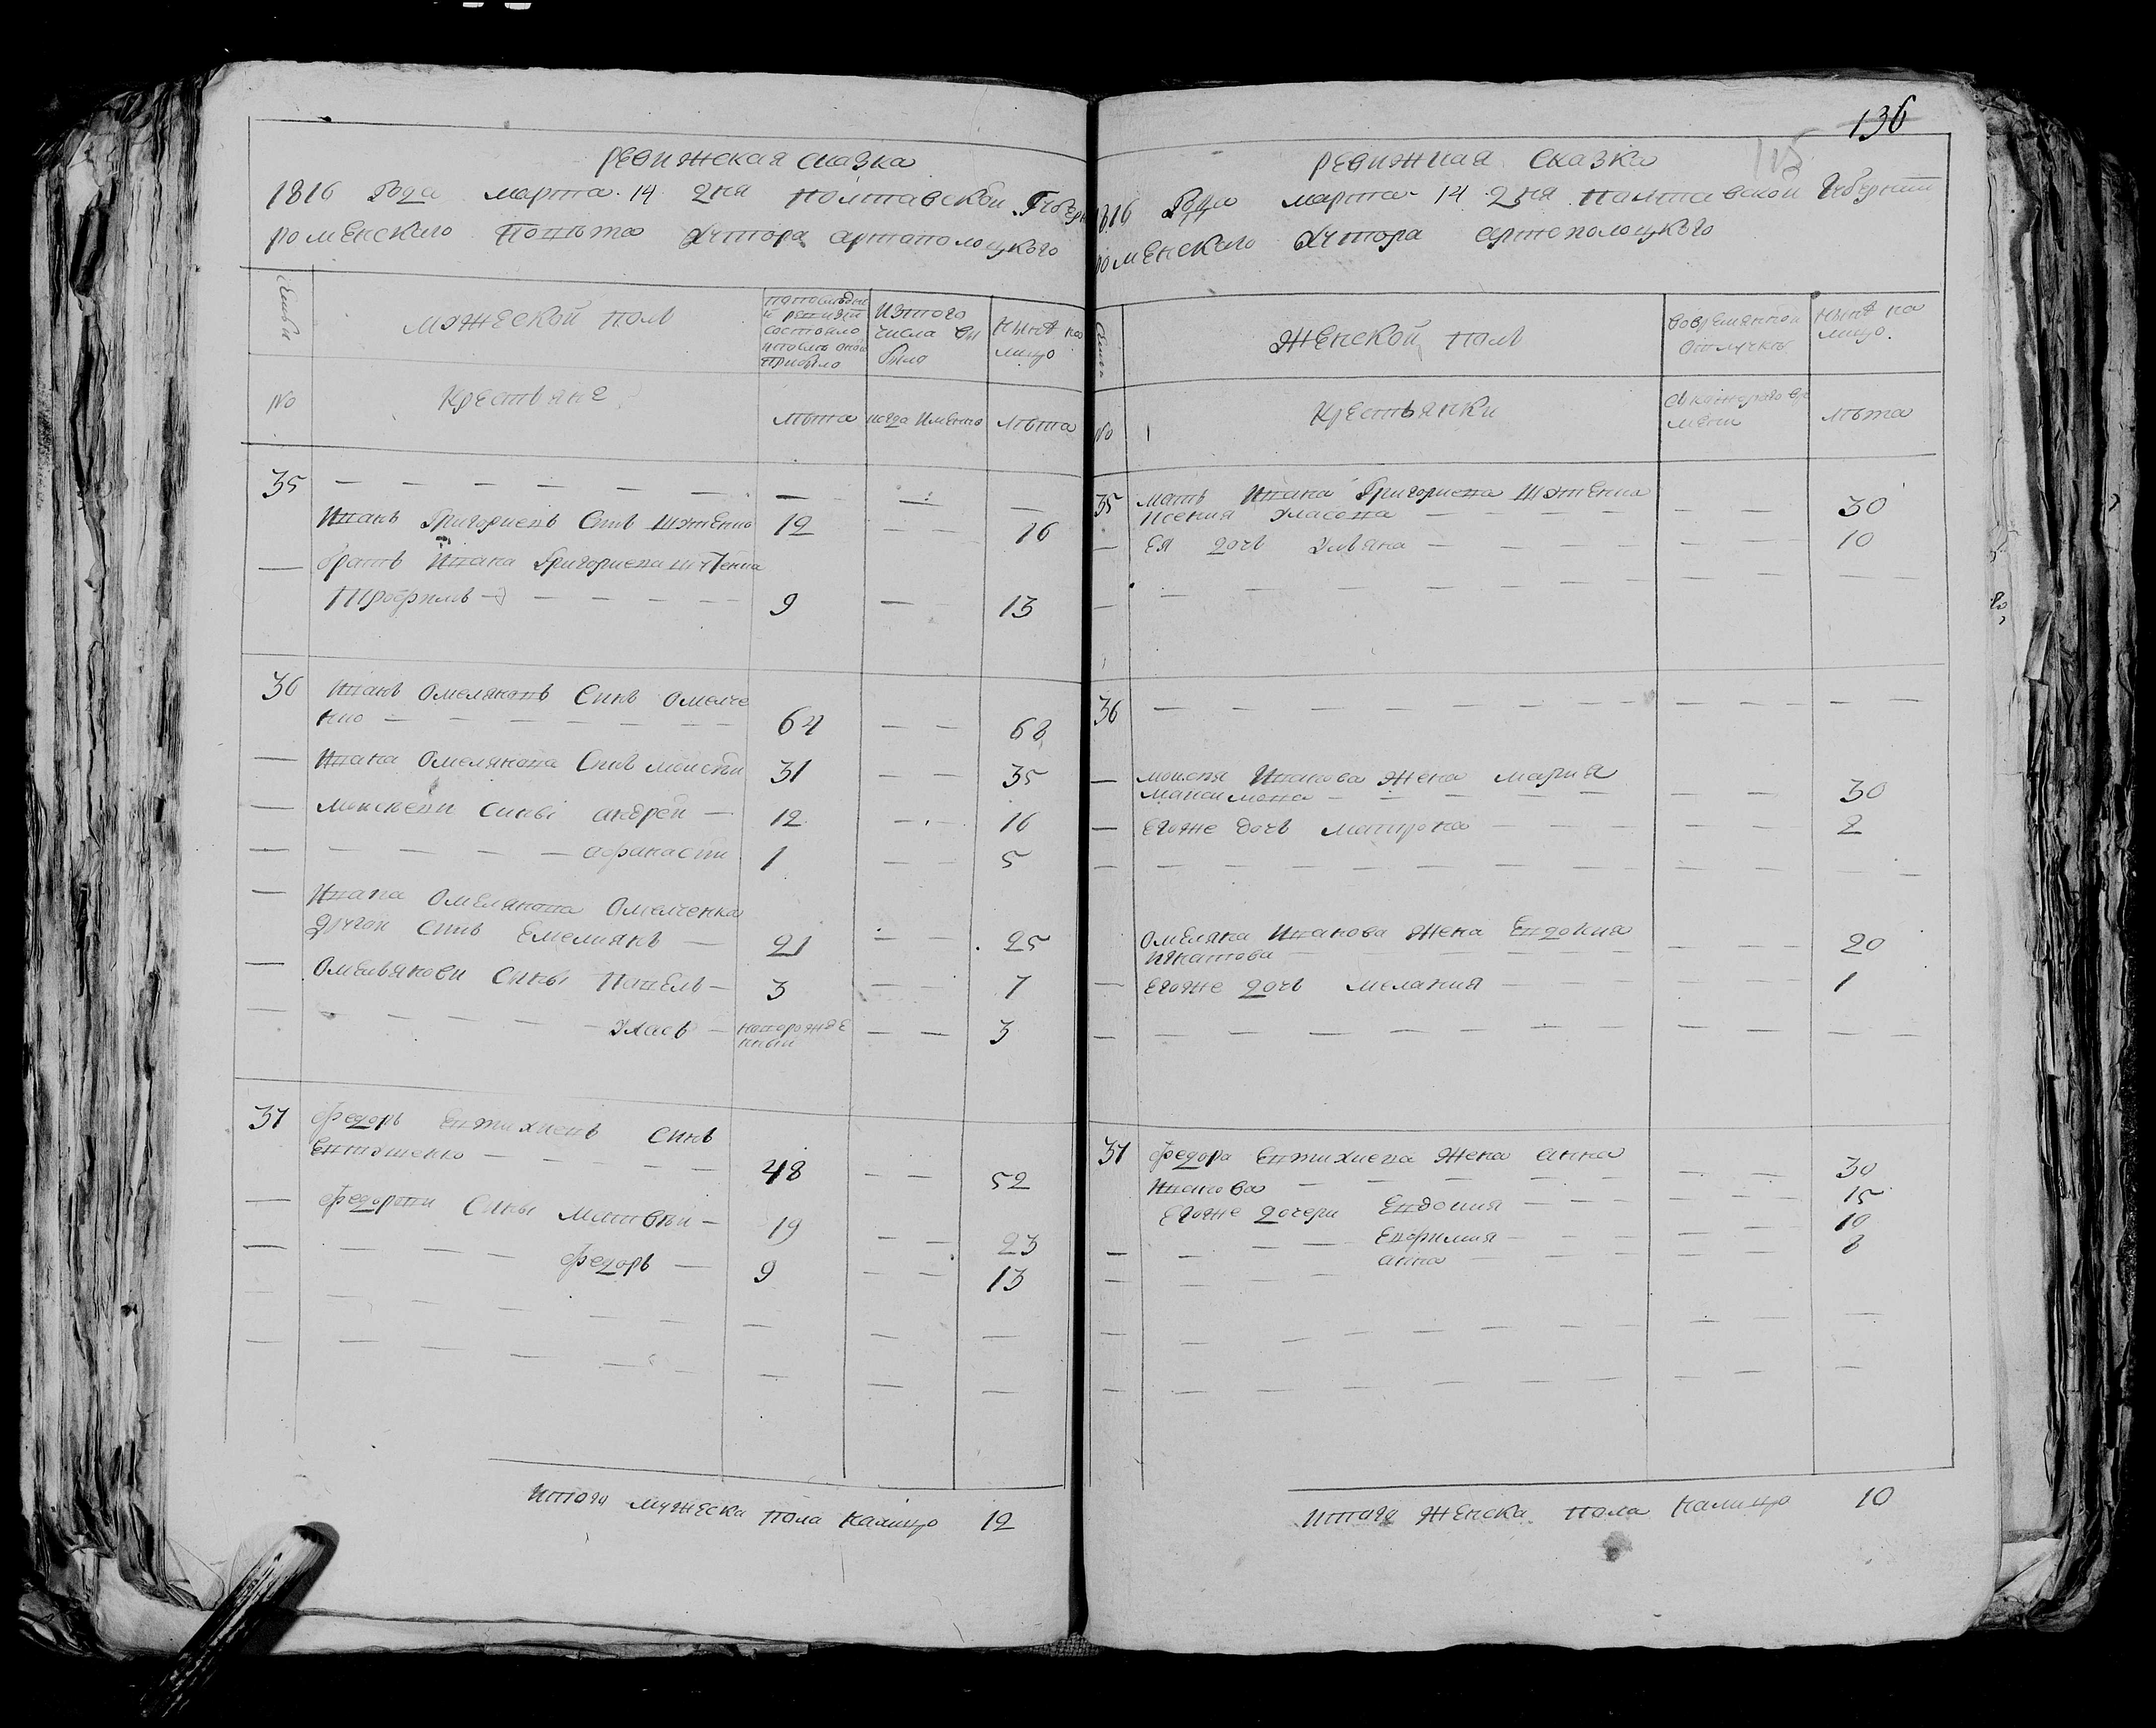 136
115
Ревижская сказка
1816 Года марта 14 дня Полтавской Губерн
роменского Повѣта Хутора артаполоцкого
Семьи
мужеской полъ
папослѣдне
й ревизіи
состояло
ипослѣ оной
прибыло
Изтого
числа вы
было
Нынѣ на
лицо
No
Крестьяне
лѣта
когда Именно
лѣта
35 — — — — — —
Иванъ Григориевъ Синъ Шутенко 12 — — 16
— братъ Ивана Григориева Шутенка
Трофимъ — — — — 9 — — 13
36 Иванъ Омеляновъ Синъ Омелче
нко — — — — — 64 — — 68
— Ивана Омелянова Синъ моисѣй 31 — — 35
— моисѣеви Сины андрей — 12 — — 16
— — — — — афанасий 1 — — 5
— Ивана Омелянова Омелченка
другой Синъ Емелиянъ — 21 — — 25
— Омельянови Сины Павелъ — 3 — — 7
— — — — — Уласъ — новорожде
нный — — 3
37 Федоръ Евтихиевъ Синъ
Евтушенко — — — — 48 — — 52
— Федорови Сины Матвѣй — 19 — — 23
— — — — Федоръ — 9 — — 13
Итого мужеска пола налицо 12
Ревижная Сказка
1816 Года марта 14 дня Полтавской Губернии
роменского Хутора артополоцкого
Семьи
Женской полъ
Вовремянной
отлучкѣ
Нынѣ на
лицо
No
Крестьянки
Скоторого вре
мени
лѣта
35 мать Ивана Григориева Шутенка
Ксения Уласова — — — — 30
— Ея дочь Ульяна — — — — 10
36 — — — — — —
— моисея Иванова Жена мария
Максимова — — — — 30
— Егоже дочь матрона — — — 2
Омеляна Иванова Жена Евдокия
Игнатова — — — — 20
— Егоже дочь мелания — — — 1
37 Федора Евтихиева Жена анна
Иванова — — — — 30
Егоже дочери Евдокия — — — 15
— — Евфимия — — — 10
— — анна — — — 8
Итого Женска пола налицо 10